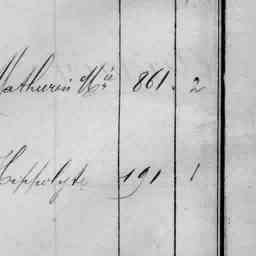 Mathurin Mie 861. 2
Hippolyte 191 1